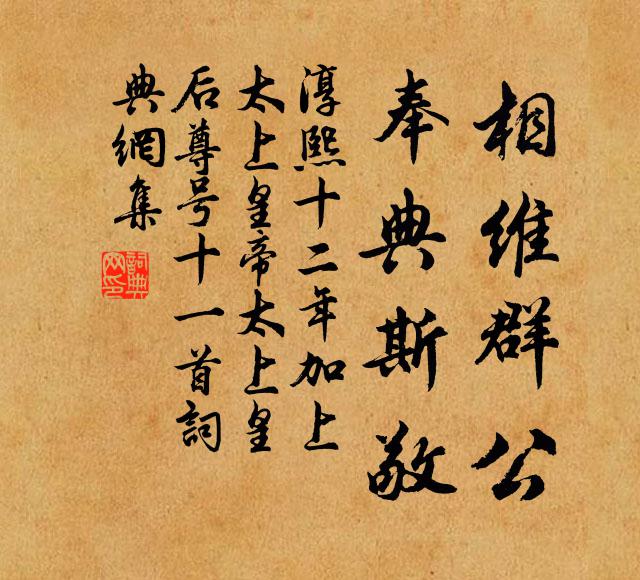 相维群公
奉典斯敬
淳熙十二年加上
太上皇帝太上皇
后尊号十一首词
典網集
詞典網印